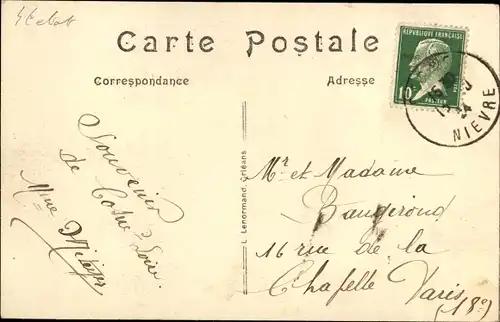 Carte Postale
Correspondance
Adresse
REPUBLIQUE FRANÇAISE
10c
PASTEUR
NIEVRE
Souvenir
de Cosne s/ Loire
Mme
L. Lenormand, Orléans
Mr et Madame
16 rue de la
Chapelle Paris
(18e)